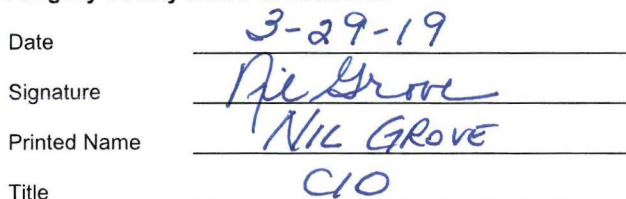 Date 3-29-19
Signature Nil Grove
Printed Name NIL GROVE
Title CIO